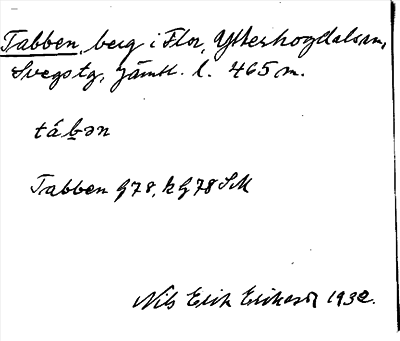 Tabben, berg i Flor, Ytterhogdals sn,
Svegs tg, Jämtl. l. 465 m.
tábən
Tabben G78, k G78 SM
Nils Erik Erikson 1932.